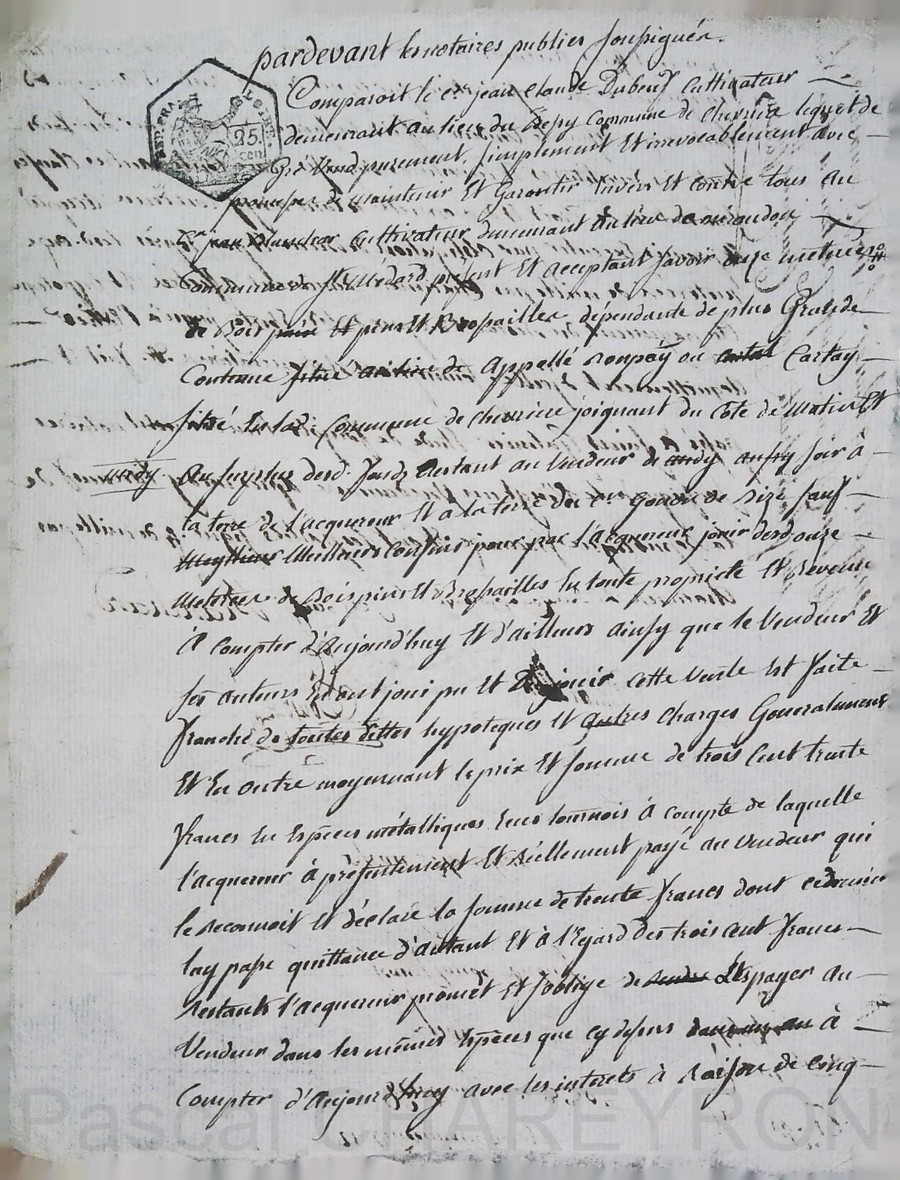 pardevant les notaires publics soussignés.
Comparoit le cn jean Claude Dubeuf Cultivateur
demeurant au lieu du Commune de Chevrière lequel de
Gré Vend purement, simplement Et irrévocablement avec
promesses de maintenir Et Garentir Envers Et Contre tous au
Cn jean Cultivateur demeurant au lieu de
Commune de St Médard présent Et acceptant savoir onze métres
de pins Et Brossailles dépendante de plus Grande
Contenue appellé ou Cartay
situé En la de Commune de Chevrière joignant du Côté de matin Et
au surplus desd. fonds Restant au Vendeur de soir à
la terre de l'acquereur Et a la terre du cn de bize sauf
Meilleurs Confins pour par l'acquereur jouir desd onze
Métrées de Bois pins Et Brossailles En toute propriété Et
A compter d'aujourd'huy Et d'ailleurs ainsy que le Vendeur Et
ses auteurs En ont joui pu Et dû jouir cette Vente Est faite
franche de toutes dettes hypoteques Et autres Charges Généralement
Et En outre moyennant le prix Et somme de trois Cent trente
francs En Espèces métalliques Cours tournois à compte de laquelle
l'acquereur à présentement Et réellement payé au Vendeur qui
le reconnoit Et déclare la somme de trente francs dont ce dernier
luy passe quittance d'autant Et à l'Egard des trois cent francs
Restants l'acquereur promet Et s'oblige de Les payer au
Vendeur dans les mêmes Espèces que cy dessus à
Compter d'Aujourd'huy avec les interets à Raison de cinq
25.
Cen
Pascal CHAREYRON